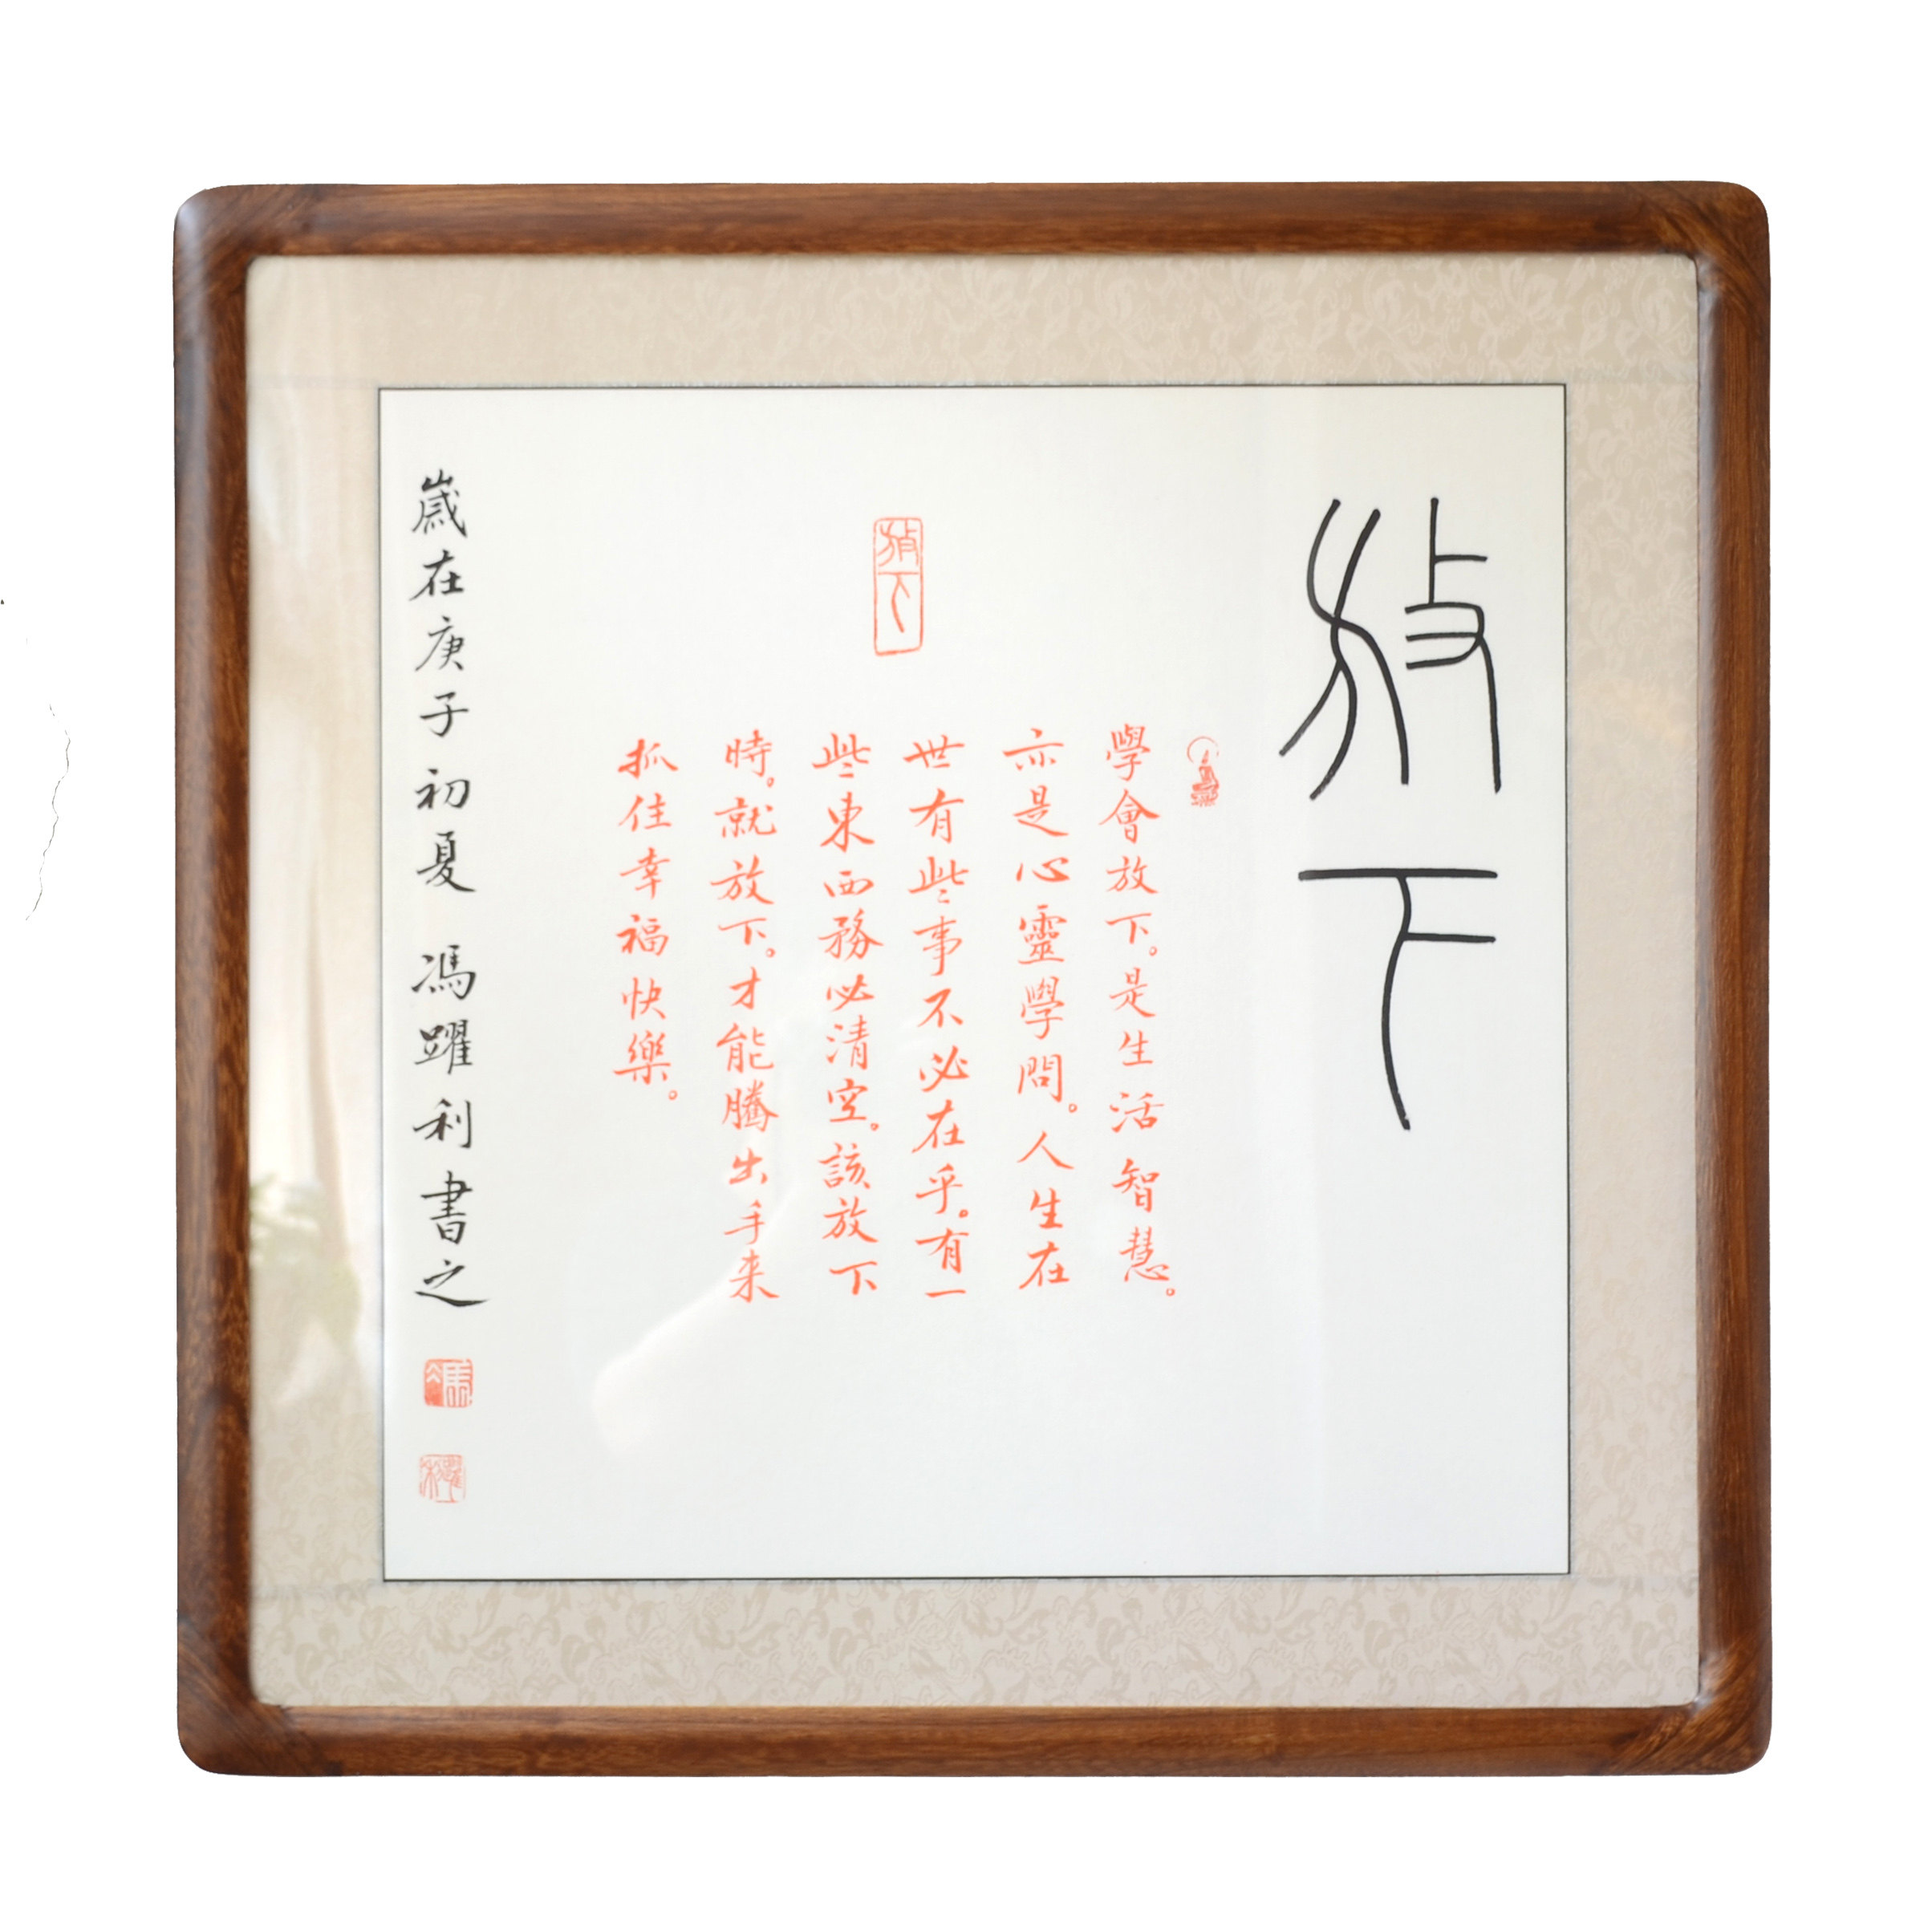 放下
學會放下。是生活智慧。
亦是心靈學問。人生在
世有些事不必在乎。有一
些東西務必清空。該放下
時。就放下。才能騰出手来
抓住幸福快樂。
放下
歲在庚子初夏 馮躍利書之